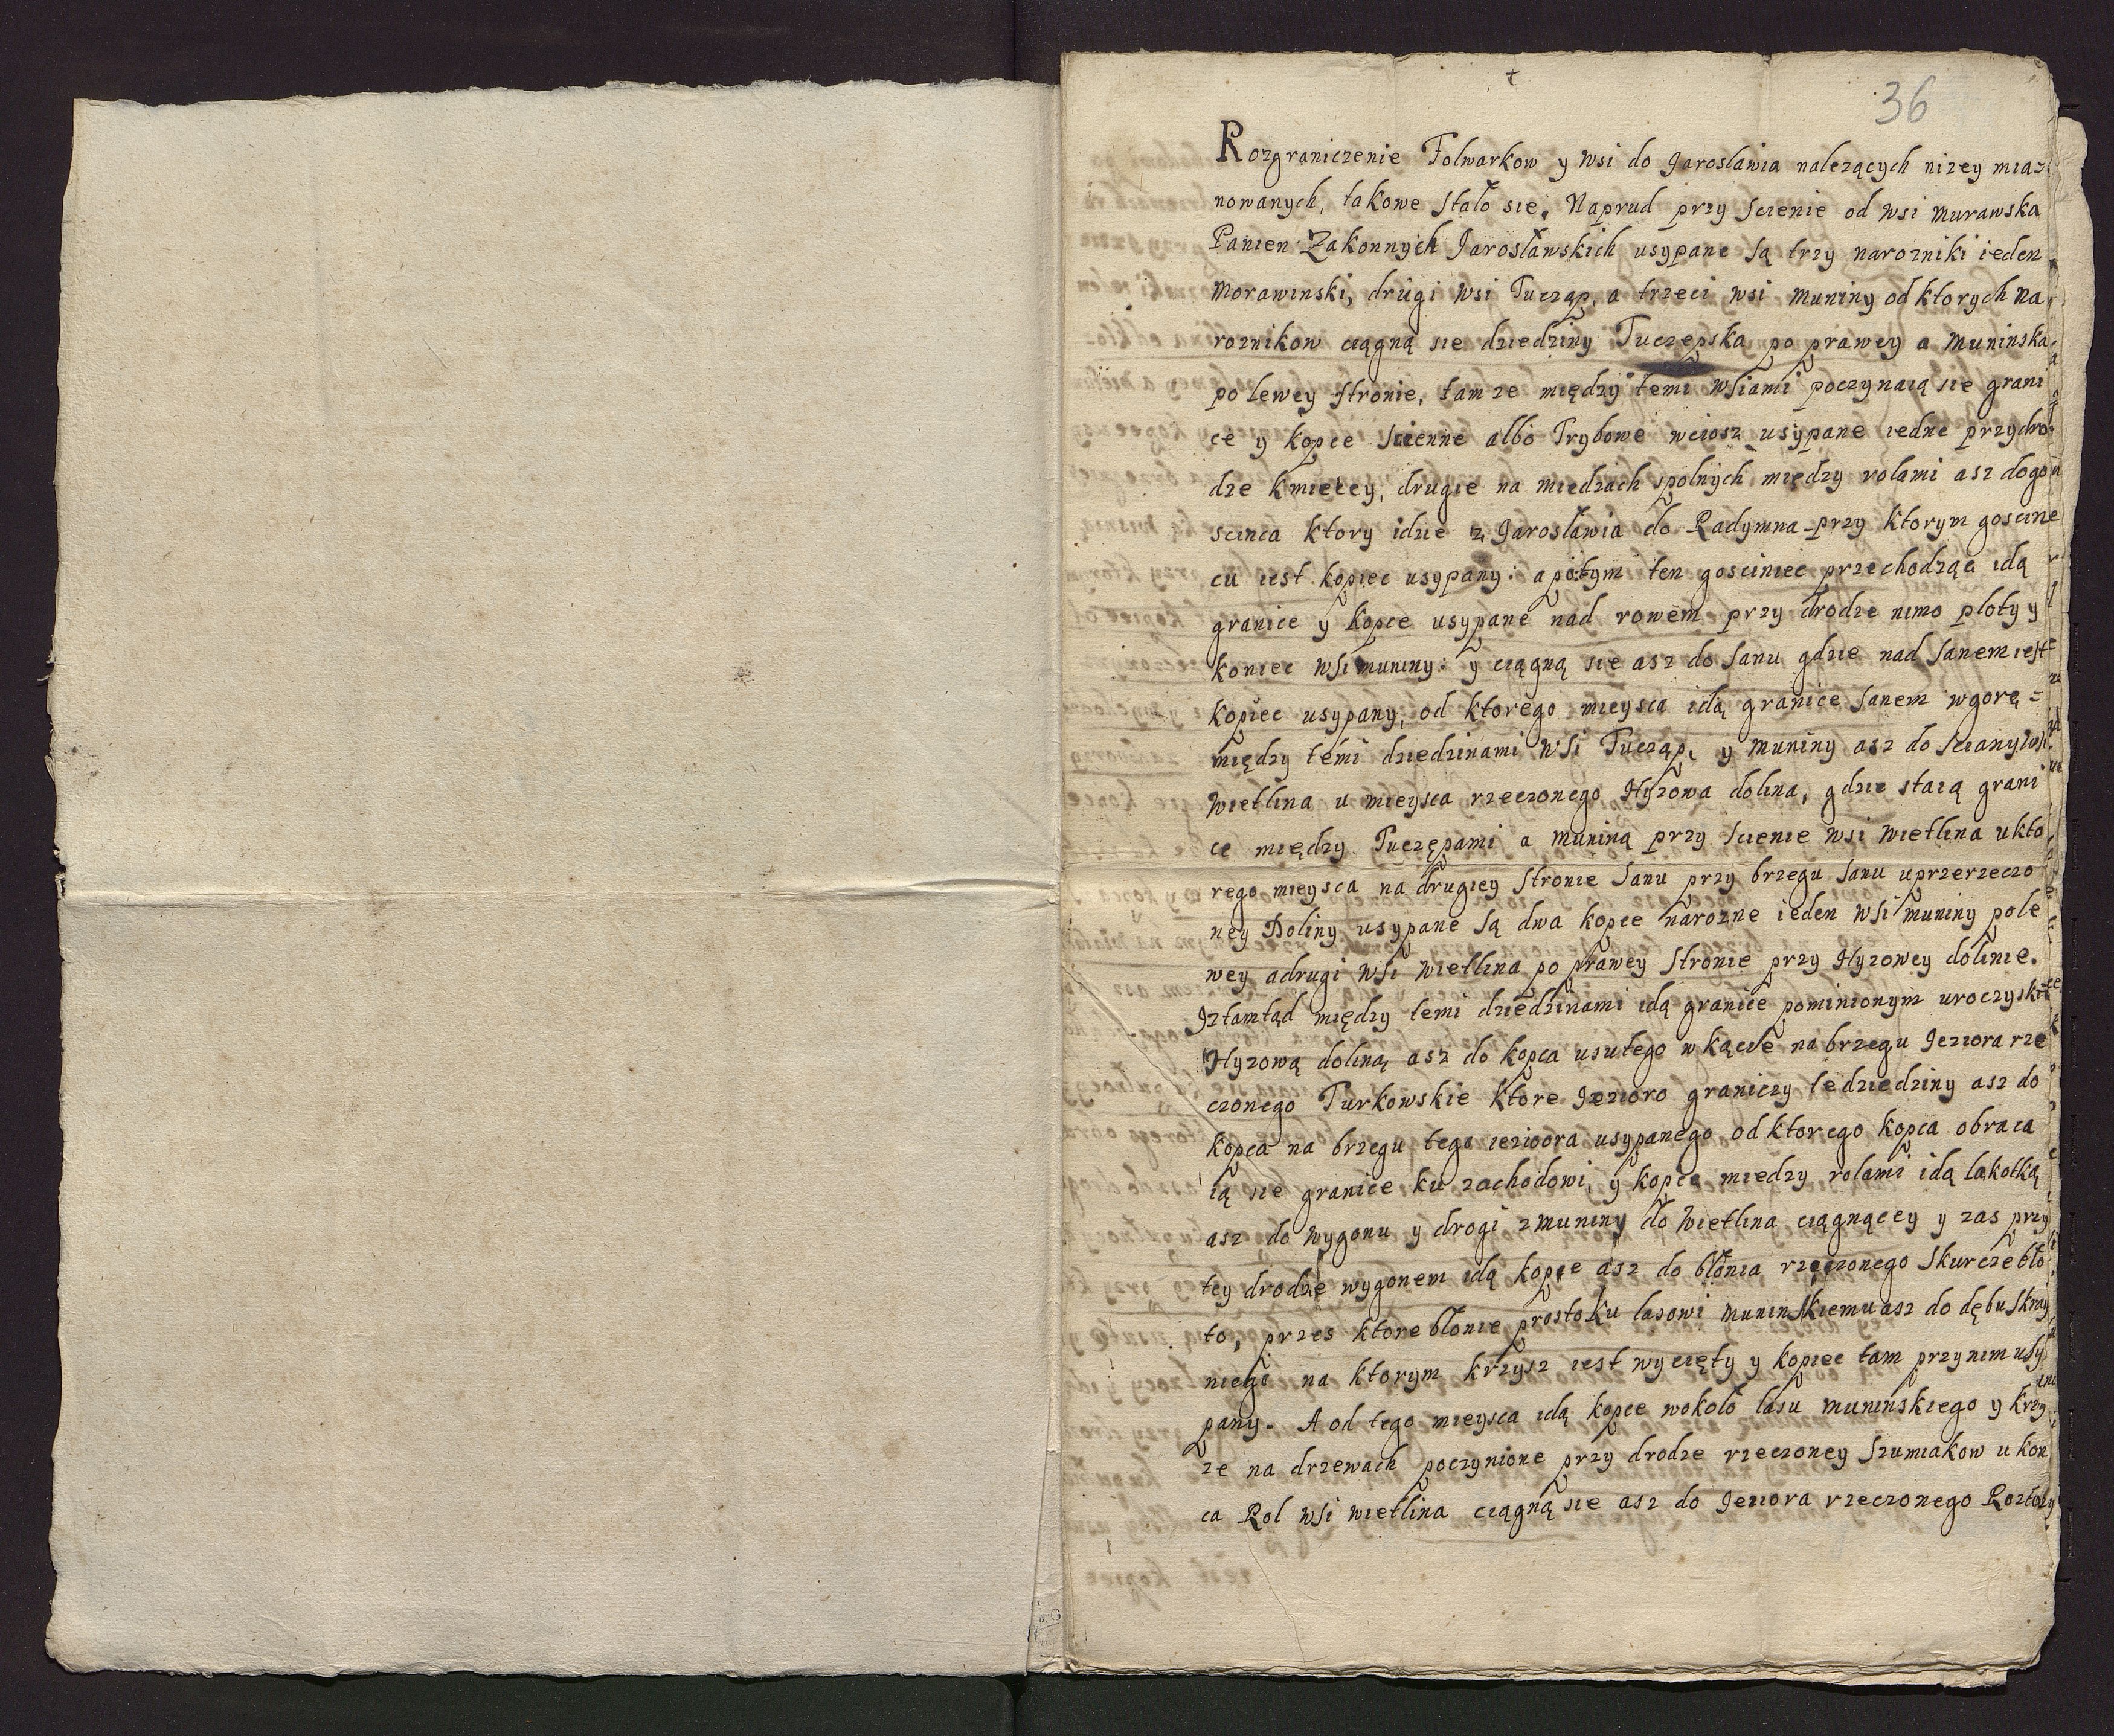 +
36
Rozgraniczenie Folwarkow y wsi do Jaroslawia nalezących nizey mia=
nowanych, takowe stało sie. Naprud przy scienie od wsi Murawska
Panien Zakonnych Jarosławskich usypane są trzy narozniki ieden
Morawinski, drugi wsi Tucząp, a trzeci wsi Muniny od ktorych na
roznikow ciągną sie dziedziny Tuczępska po prawey a Muninska
po lewey stronie, tam ze między temi wsiami poczynaią sie grani
ce y kopce scienne albo Trybowe wciosz usypane iedne przy dro
dze kmiecey, drugie na miedzach spolnych między rolami asz do go
scinca ktory idzie z Jarosławia do Radymna przy ktorym goscine
cu iest kopiec usypany: a potym ten gosciniec przechodząc idą
granice y kopce usypane nad rowem przy drodze nimo płoty y
koniec wsi muniny: y ciągną sie asz do Sanu gdzie nad Sanem iest
kopiec usypany, od ktorego mieysca idą granice Sanem wgorę =
między temi dziedzinami wsi Tucząp, y Muniny asz do sciany wsi
Wietlina u mieysca rzeczonego Hyzowa dolina, gdzie staią grani
ce między Tuczępami a muniną przy scienie wsi wietlina u kto
rego mieysca na drugiey stronie Sanu przy brzegu Sanu u przerzeczo
ney Doliny usypane są dwa kopce narozne ieden wsi muniny po le
wey a drugi wsi wietlina po prawey stronie przy Hyzowey dolinie.
Iztamtąd między temi dziedzinami idą granice pominionym uroczyskie
Hyzową doliną asz do kopca usutego w kącie na brzegu Jeziora rze
czonego Turkowskie ktore Jezioro graniczy te dziedziny asz do
kopca na brzegu tego ieziora usypanego od ktorego kopca obraca
ią sie granice ku zachodowi, y kopce miedzy rolami idą lakotką
asz do wygonu y drogi z muniny do Wietlina ciągnącey y zas przy
tey drodze wygonem idą kopce asz do błonia rzeczonego Skurcze bło
to, przes ktore błonie prosto ku lasowi muninskiemu asz do dębu skray
niego na ktorym krzysz iest wycięty y kopiec tam przy nim usy
pany. A od tego mieysca idą kopce wokoło lasu muninskiego y krzy
ze na drzewach poczynione przy drodze rzeczoney Szumiakow u kon
ca Rol wsi wietlina ciągną sie asz do Jeziora rzeczonego